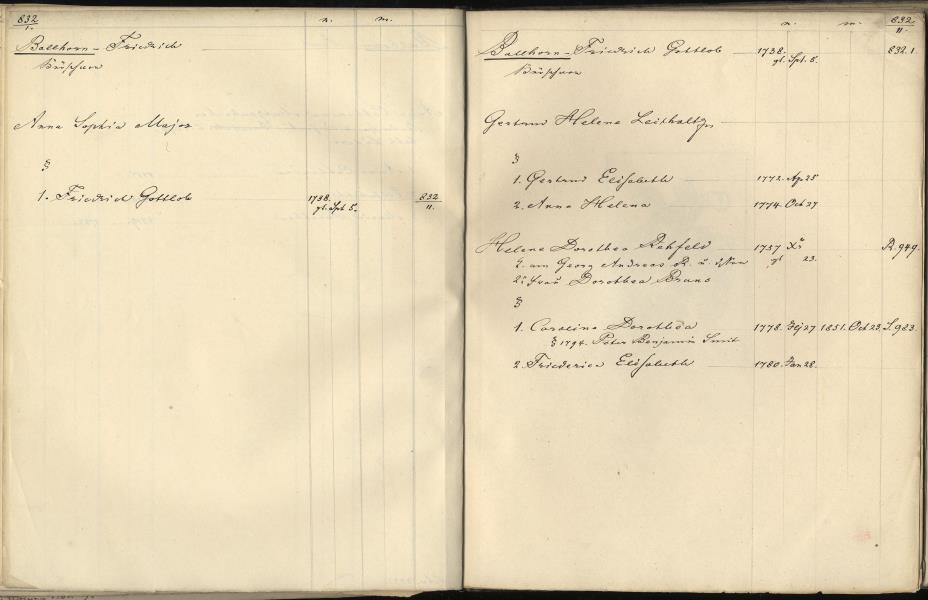 832
I.
n. m.
Ballhorn - Friedrich
Kürschner
Anna Sophia Major
§
1. Friedrich Gottlob 1738. 832
gt. Spt. 5. II.
n. m. 832
II.
Ballhorn - Friedrich Gottlob 1738. 832.I.
gt. Spt. 5.
Kürschner
Gertrud Helena
§
1. Gertrud Elisabeth 1772. Ap 25
2. Anna Helena 1774. Oct 27
Helena Dorothea Rehfeld 1757 Xbr R. 949.
T. von Georg Andreas R. u. dssen gt 23.
2t Frau Dorothea Bruns
§
1. Carolina Dorothea 1778. 27 1851. Oct 23. S. 983.
§ 1794. Peter Benjamin Smit
2. Friederica Elisabeth 1780. Jan 28.